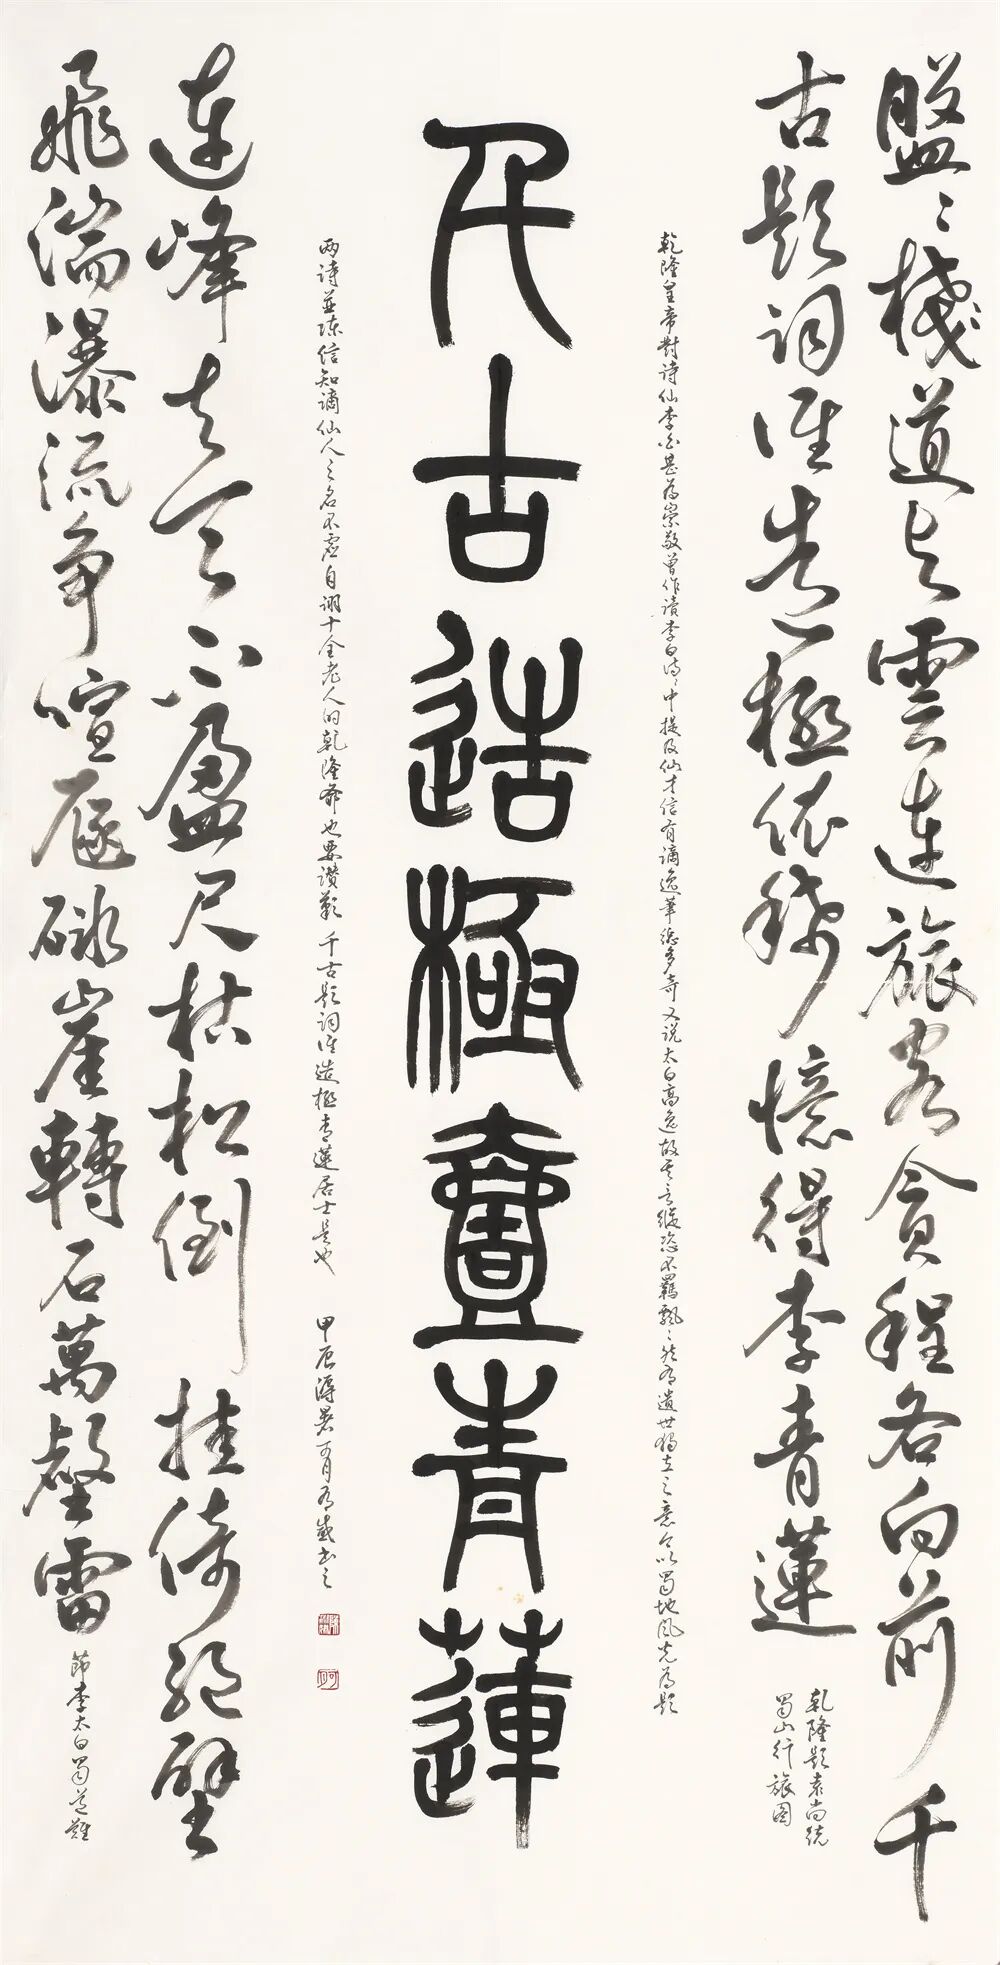 盤〻棧道與雲連旅客貪程各向前千
古題詞誰造極依稀憶得李青蓮
乾隆題袁尚統
蜀山行旅图
乾隆皇帝對詩仙李白甚為崇敬曾作讀李白詩〻中提及仙才信有謫逸筆總多奇又說太白高逸故其言縱恣不羈飄〻然有遺世獨立之意今以蜀地风光為題
千古造極壹青蓮
两詩並陳信知謫仙人之名不虛自詡十全老人的乾隆爺也要讚歎千古題詞誰造極青蓮居士是也 甲辰溽暑可月有感書之
連峰去天不盈尺枯松倒挂倚絕壁
飛湍瀑流争喧豗砯崖轉石萬壑雷
節李太白蜀道難